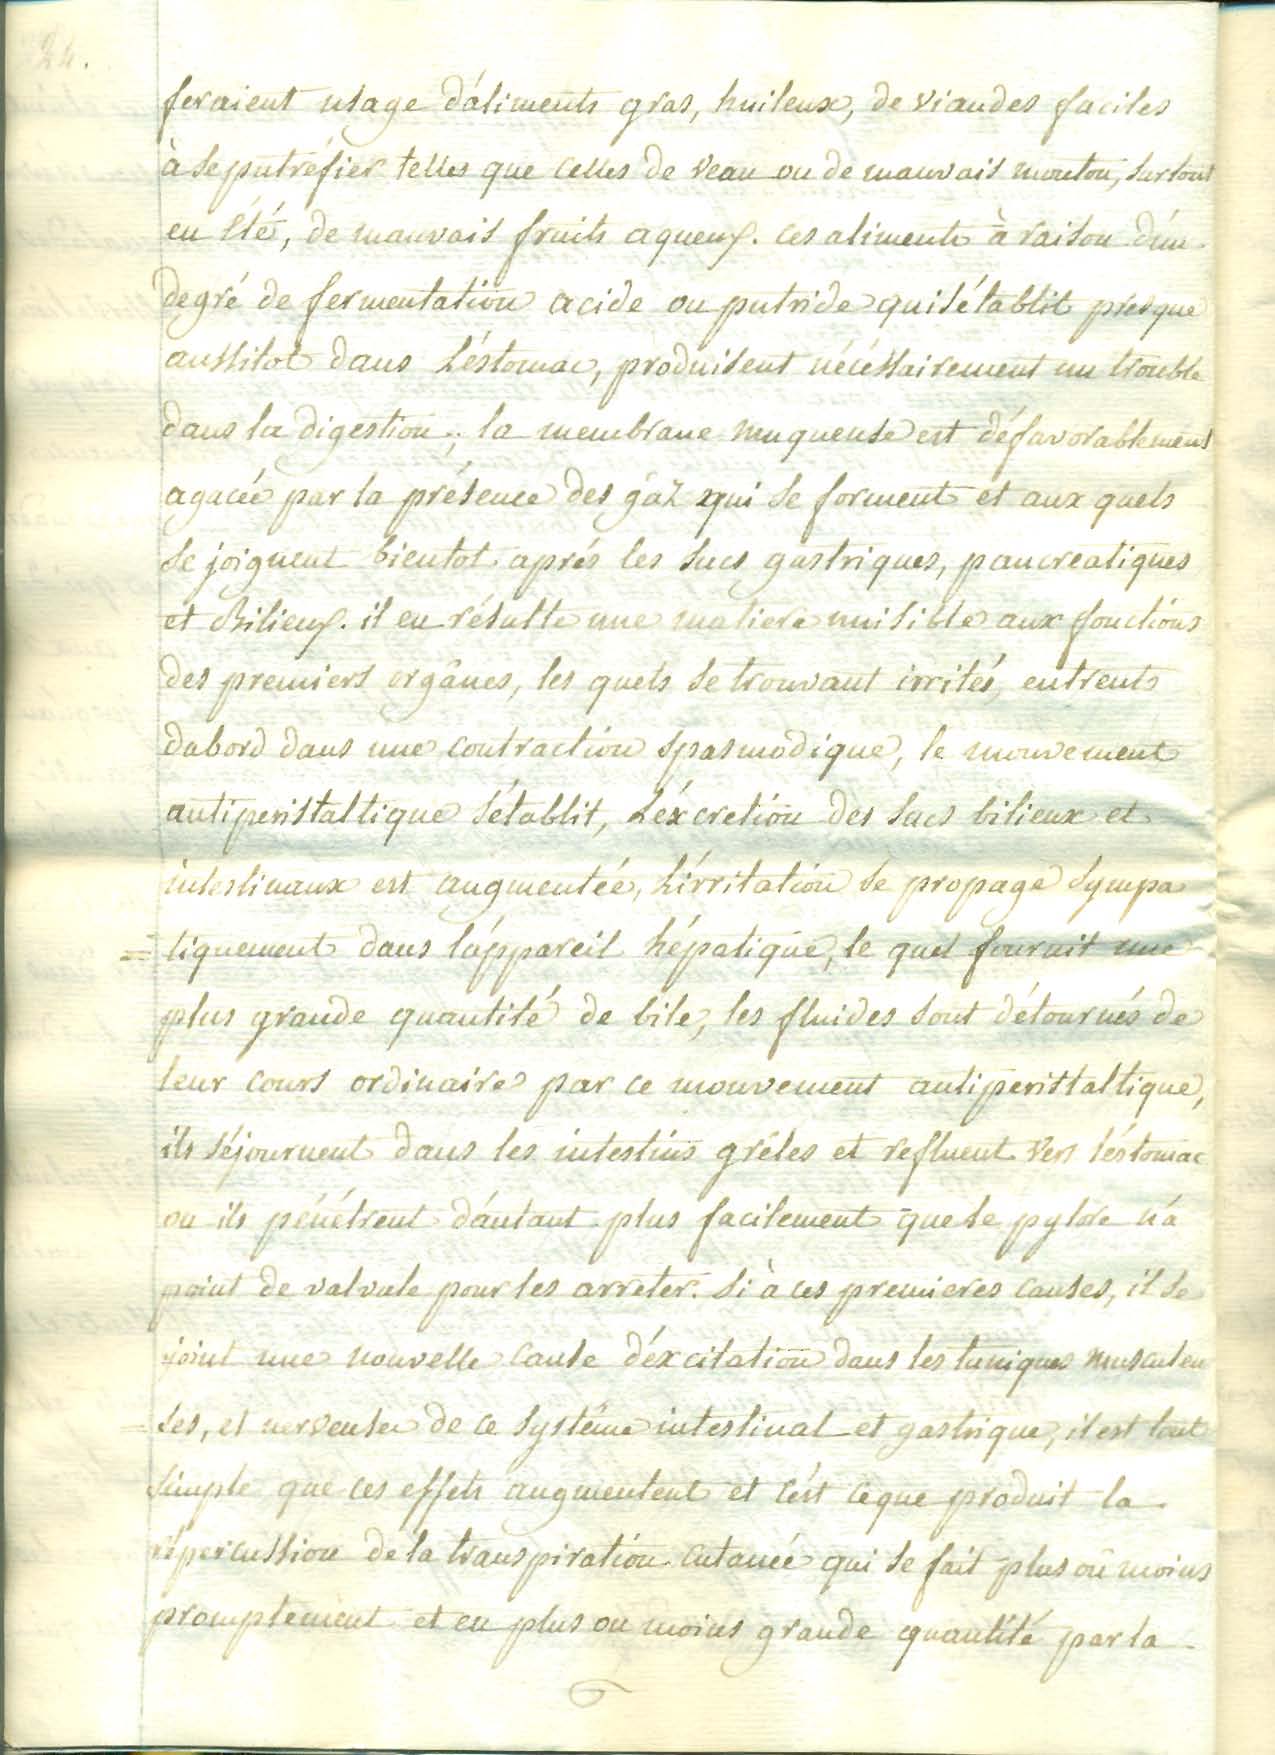 24.
feraient usage d'áliments gras, huileux, de viandes faciles
à se putréfier telles que celles de veau ou de mauvais mouton, surtout
en Eté, de mauvais fruits aqueux. ces aliments à raison d'un
degré de fermentation acide ou putride qui s'établit presque
aussitot dans L'éstomac, produisent nécéssairement un trouble
dans la digestion; la membrane muqueuse est défavorablement
agacée par la présence des gáz qui se forment et aux quels
se joignent bientot aprés les sucs gastriques, pancreatiques
et Bilieux. il en résulte une matiere nuisible aux fonctions
des premiers orgânes, les quels se trouvant irrités, entrent
dabord dans une contraction spasmodique, le mouvement
antiperistaltique s'établit, L'éxcretion des sucs bilieux et
intestinaux est augmentée, L'írritation se propage sympa
= tiquement dans l'áppareil hépatique, le quel fournit une
plus grande quantité de bile, les fluides sont détournés de
leur cours ordinaire par ce mouvement antiperistaltique,
ils séjournent dans les intestins gréles et refluent vers l'éstomac
ou ils pénétrent d'áutant plus facilement que le pylore n'a
point de valvule pour les arreter. Si à ces premieres causes, il se
joint une nouvelle cause d'éxcitation dans les tuniques musculeu
= ses, et nerveuses de ce systéme intestinal et gastrique, il est tout
simple que ces effets augmentent et c'ést ce que produit la
répercussion de la transpiration cutanée qui se fait plus ou moins
promptement et en plus ou moins grande quantité par la